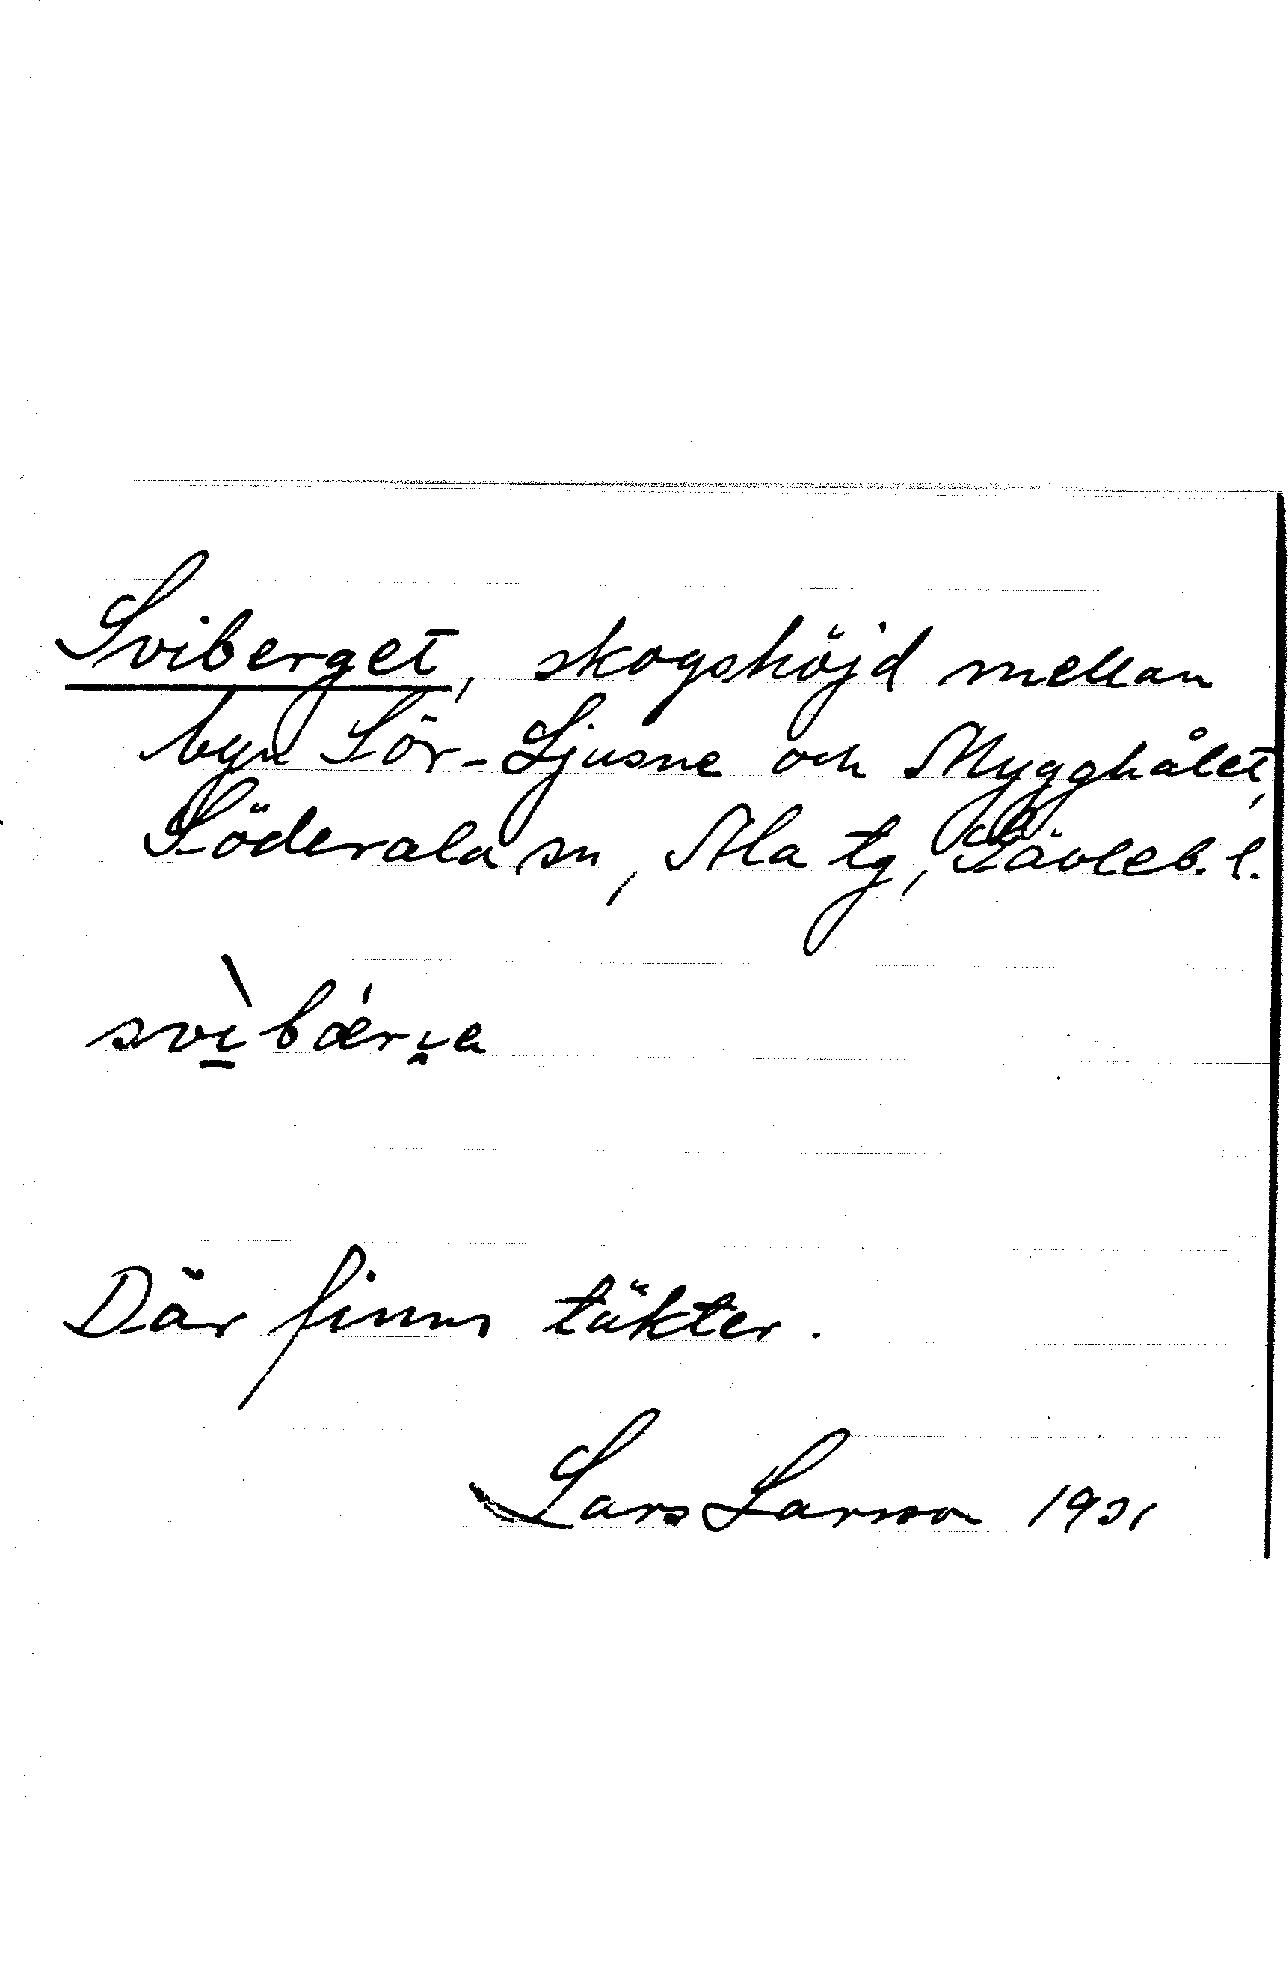 Sviberget, skogshöjd mellan
byn Sör-Ljusne och Mygghålet,
Söderala sn, Ala tg, Gävleb. l.
svì̠bǽri̭a
Där finns täkter.
Lars Larsson 1931